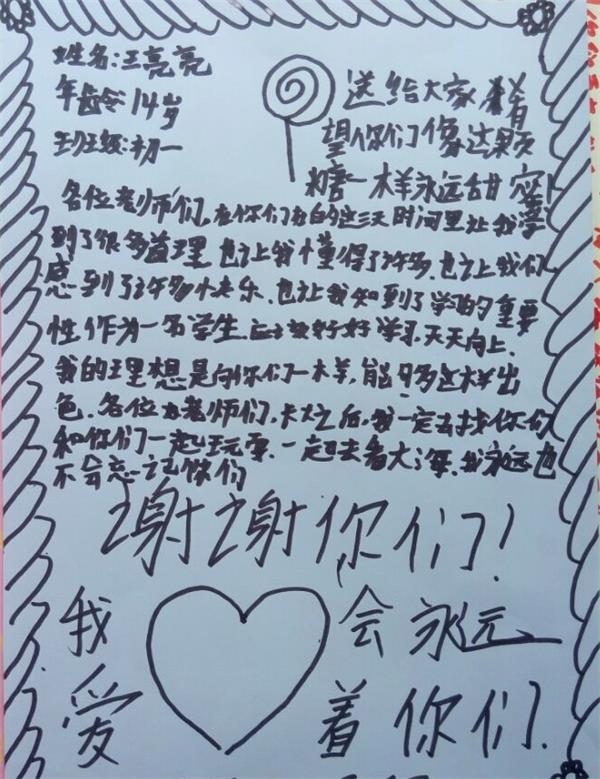 姓名:王亮亮
年龄:14岁
班级:初一
送给大家 希
望你们像这颗
糖一样永远甜蜜
各位老师们,在你们的这三天时间里让我学
到了很多道理 也让我懂得了许多,也让我们
感到了许多快乐,也让我知到了学习的重要
性作为一名学生,应该好好学习,天天向上,
我的理想是向你们一样,能够这样出
色,各位老师们,长大之后,我一定去找你们
和你们一起玩耍,一起去看大海,我永远也
不会忘记你们
谢谢你们!
我 会永远
爱 着你们.